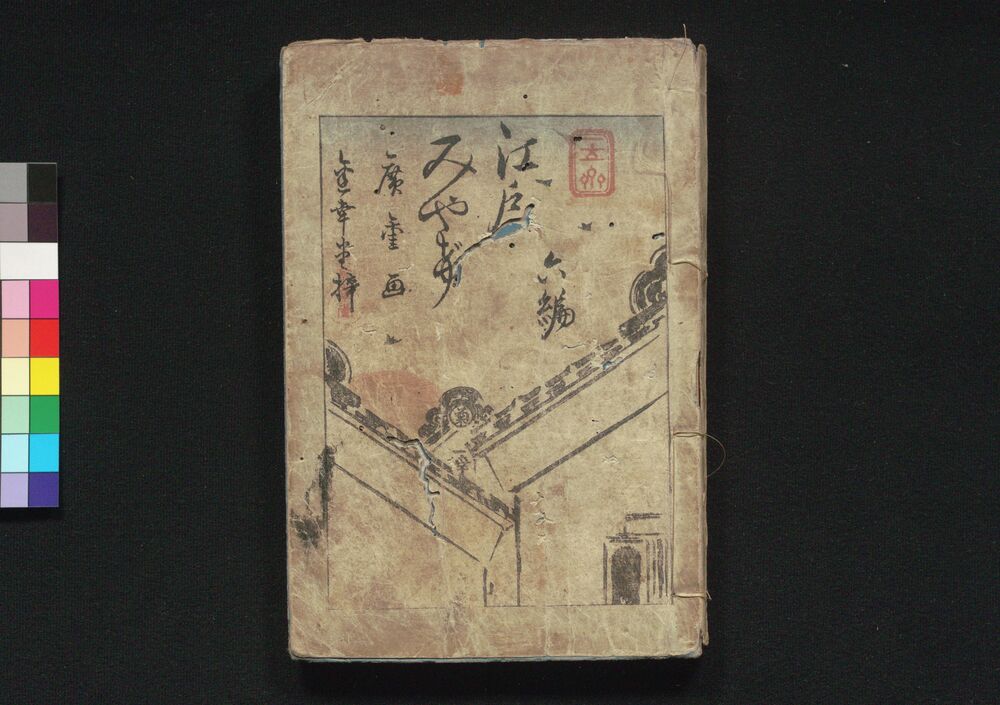 江戸
みやげ
六編
廣重画
金幸堂梓